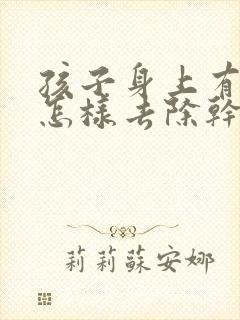 孩子身上有
怎樣去除幹
莉莉蘇安娜